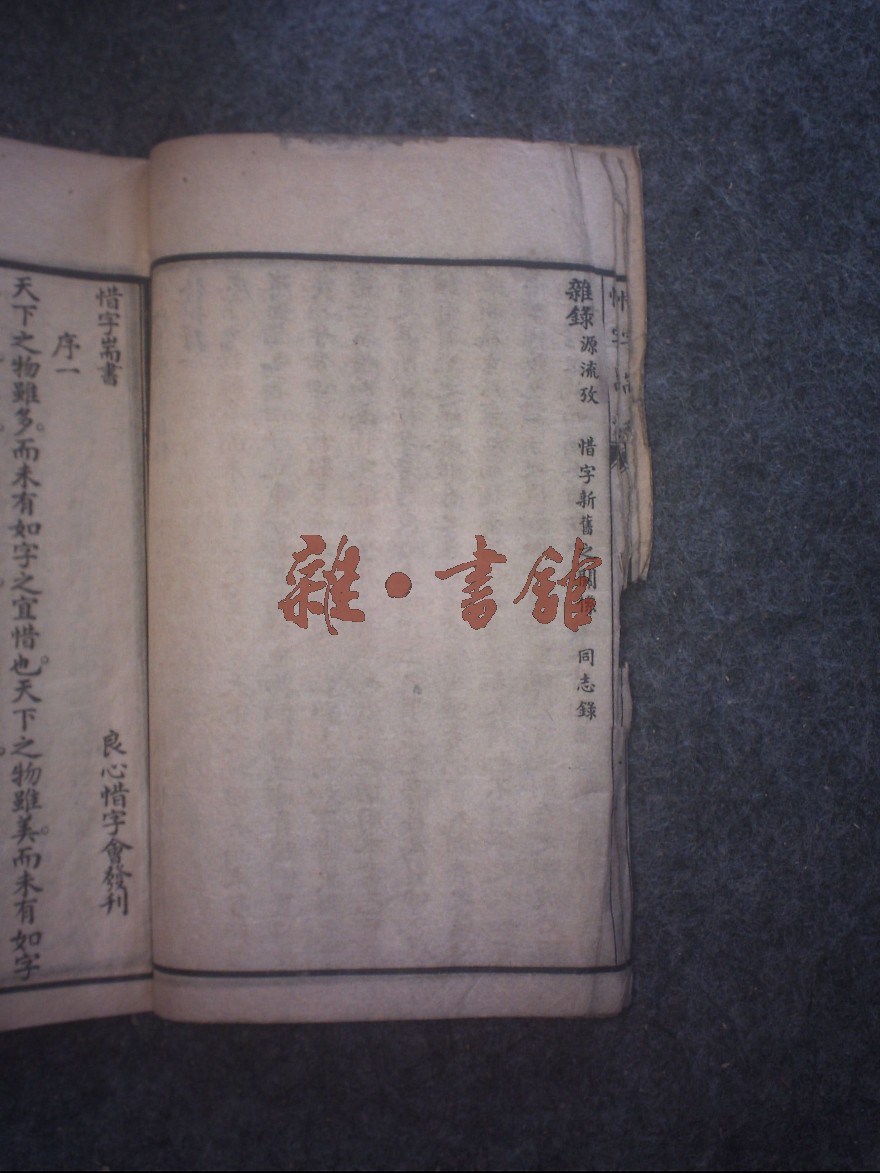 雜錄 源流攷 惜字新舊之關係 同志錄
惜字耑書 良心惜字會發刊
序一
天下之物雖多。而未有如字之宜惜也。天下之物雖美。而未有如字
雜·書館